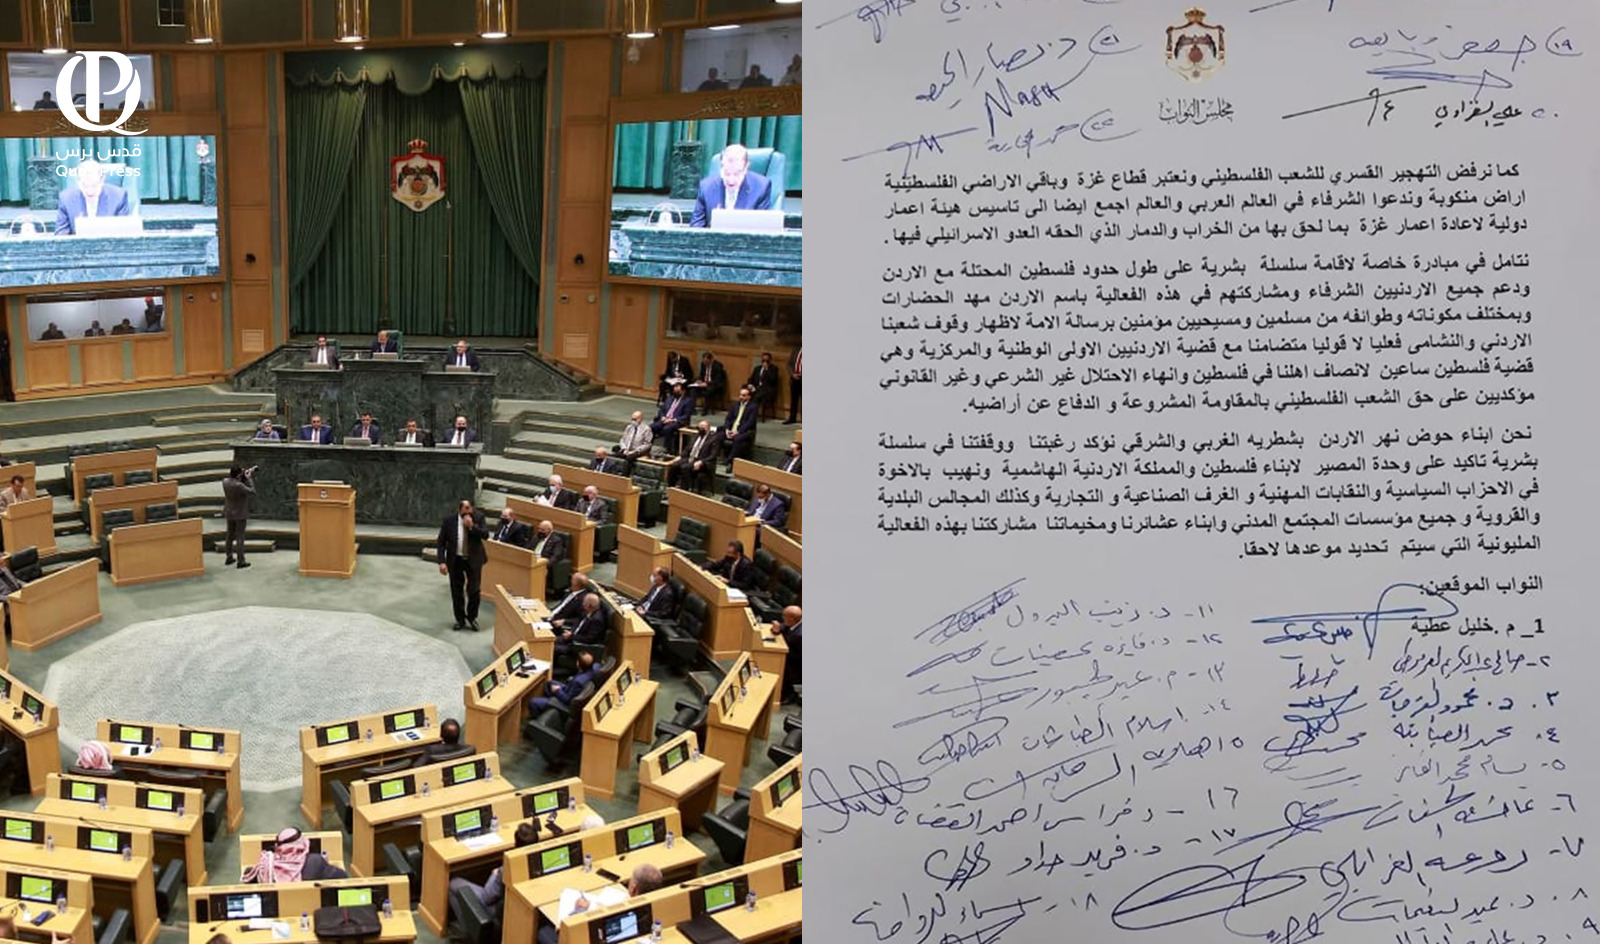 قدس برس
Quds Press
١٩
٢١
٢٢
مجلس النواب
كما نرفض التهجير القسري للشعب الفلسطيني ونعتبر قطاع غزة وباقي الاراضي الفلسطينية
اراض منكوبة وندعوا الشرفاء في العالم العربي والعالم اجمع ايضا الى تاسيس هيئة اعمار
دولية لاعادة اعمار غزة بما لحق بها من الخراب والدمار الذي الحقه العدو الاسرائيلي فيها .
نتامل في مبادرة خاصة لاقامة سلسلة بشرية على طول حدود فلسطين المحتلة مع الاردن
ودعم جميع الاردنيين الشرفاء ومشاركتهم في هذه الفعالية باسم الاردن مهد الحضارات
وبمختلف مكوناته وطوائفه من مسلمين ومسيحيين مؤمنين برسالة الامة لاظهار وقوف شعبنا
الاردني والنشامى فعليا لا قوليا متضامنا مع قضية الاردنيين الاولى الوطنية والمركزية وهي
قضية فلسطين ساعين لانصاف اهلنا في فلسطين وانهاء الاحتلال غير الشرعي وغير القانوني
مؤكديين على حق الشعب الفلسطيني بالمقاومة المشروعة و الدفاع عن أراضيه.
نحن ابناء حوض نهر الاردن بشطريه الغربي والشرقي نؤكد رغبتنا ووقفتنا في سلسلة
بشرية تاكيد على وحدة المصير لابناء فلسطين والمملكة الاردنية الهاشمية ونهيب بالاخوة
في الاحزاب السياسية والنقابات المهنية و الغرف الصناعية و التجارية وكذلك المجالس البلدية
والقروية و جميع مؤسسات المجتمع المدني وابناء عشائرنا ومخيماتنا مشاركتنا بهذه الفعالية
المليونية التي سيتم تحديد موعدها لاحقا.
النواب الموقعين:
1_ م .خليل عطية
٢- صالح عبدالكريم العرموطي
٣. د.
٤. محمد
٥-
٦-
٧-
٨. د.
١١- د. زينب البدول
١٢- د. فايزه
١٣- م.
١٤- اسلام
١٥
١٦- د فراس احمد القضاة
١٧- د. فريد حداد
١٨-